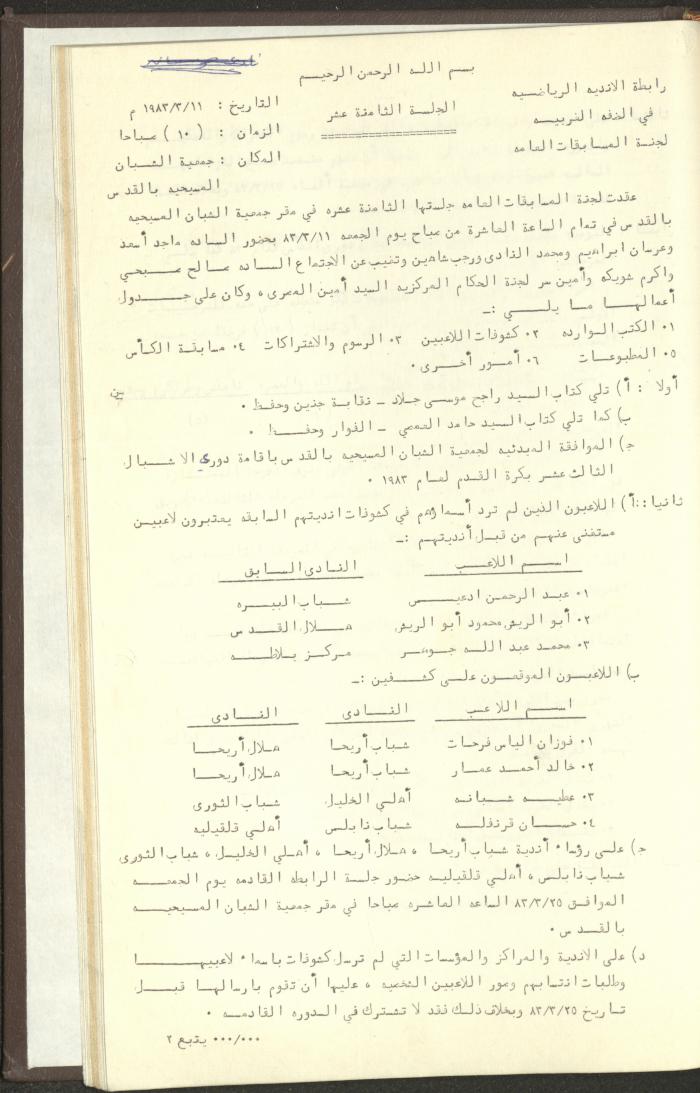 بسم الله الرحمن الرحيم
رابطة الانديه الرياضيه
في الضفه الغربيه
لجنة المسابقات العامه
الجلسة الثامنة عشر
التاريخ : ١٩٨٣/٣/١١ م
الزمان : (١٠) صباحا
المكان : جمعية الشبان
المسيحيه بالقدس
عقدت لجنة المسابقات العامه جلستها الثامنة عشره في مقر جمعية الشبان المسيحيه
بالقدس في تمام الساعة العاشرة من صباح يوم الجمعه ٨٣/٣/١١ بحضور الساده ماجد أسعد
وعرسان ابراهيم ومحمد النادى ورجب شاهين وتغيب عن الاجتماع الساده صالح صبحي
واكرم شويكه وأمين سر لجنة الحكام المركزيه السيد أمين المصرى ، وكان على جدول
أعمالها ما يلي :ـ
٠١ الكتب الوارده ٠٢ كشوفات اللاعبين ٠٣ الرسوم والاشتراكات ٠٤ مسابقة الكأس
٠٥ المطبوعات ٠٦ أمور أخرى ٠
أولا : أ) تلي كتاب السيد راجح موسى جلاد ـ نقابة جنين وحفظ ٠
ب) كما تلي كتاب السيد حامد ـ الفوار وحفظ ٠
ج) الموافقة المبدئيه لجمعية الشبان المسيحيه بالقدس باقامة دورى الاشبال
الثالث عشر بكرة القدم لعام ١٩٨٣ ٠
ثانيا :: أ) اللاعبون الذين لم ترد أسماؤهم في كشوفات انديتهم السابقه يعتبرون لاعبين
مستغنى عنهم من قبل أنديتهم :ـ
اسم اللاعب النادى السابق
٠١ عبد الرحمن ادعيس شباب البيره
٠٢ أبو الريش محمود أبو الريش هلال القدس
٠٣ محمد عبد الله جوهر مركز بلاطه
ب) اللاعبون الموقعون على كشفين :ـ
اسم اللاعب النادى النادى
٠١ فوزان الياس فرحات شباب أريحا هلال أريحا
٠٢ خالد أحمد عمار شباب أريحا هلال أريحا
٠٣ عطيه شبانه أهلي الخليل شباب الثورى
٠٤ حسان قرنفله شباب نابلس أهلي قلقيليه
ج) على رؤساء أندية شباب أريحا ، هلال أريحا ، أهلي الخليل ، شباب الثورى
شباب نابلس ، أهلي قلقيليه حضور جلسة الرابطه القادمه يوم الجمعه
الموافق ٨٣/٣/٢٥ الساعه العاشره صباحا في مقر جمعية الشبان المسيحيه
بالقدس ٠
د) على الاندية والمراكز والمؤسسات التي لم ترسل كشوفات باسماء لاعبيها
وطلبات انتسابهم وصور اللاعبين الشخصيه ، عليها أن تقوم بارسالها قبل
تاريخ ٨٣/٣/٢٥ وبخلاف ذلك فقد لا تشترك في الدوره القادمه ٠
٠٠٠/٠٠٠ يتبع ٢